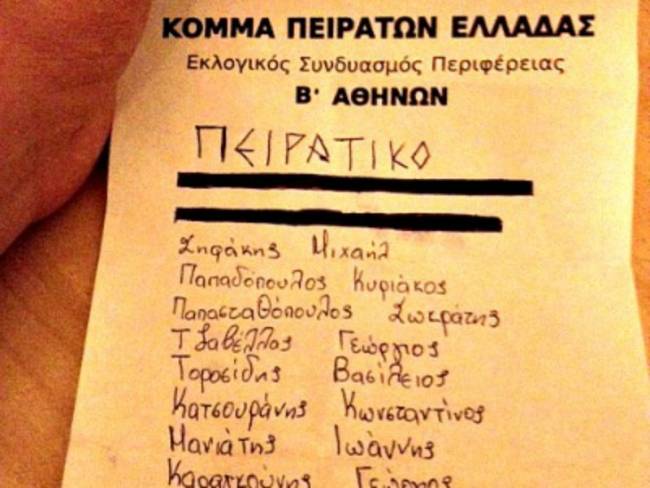 ΚΟΜΜΑ ΠΕΙΡΑΤΩΝ ΕΛΛΑΔΑΣ
Εκλογικός Συνδυασμός Περιφέρειας
Β' ΑΘΗΝΩΝ
ΠΕΙΡΑΤΙΚΟ
Σηφάκης Μιχαήλ
Παπαδόπουλος Κυριάκος
Παπασταθόπουλος Σωκράτης
Τζαβέλλας Γεώργιος
Τοροσίδης Βασίλειος
Κατσουράνης Κωνσταντίνος
Μανιάτης Ιωάννης
Καραγκούνης Γεώργιος